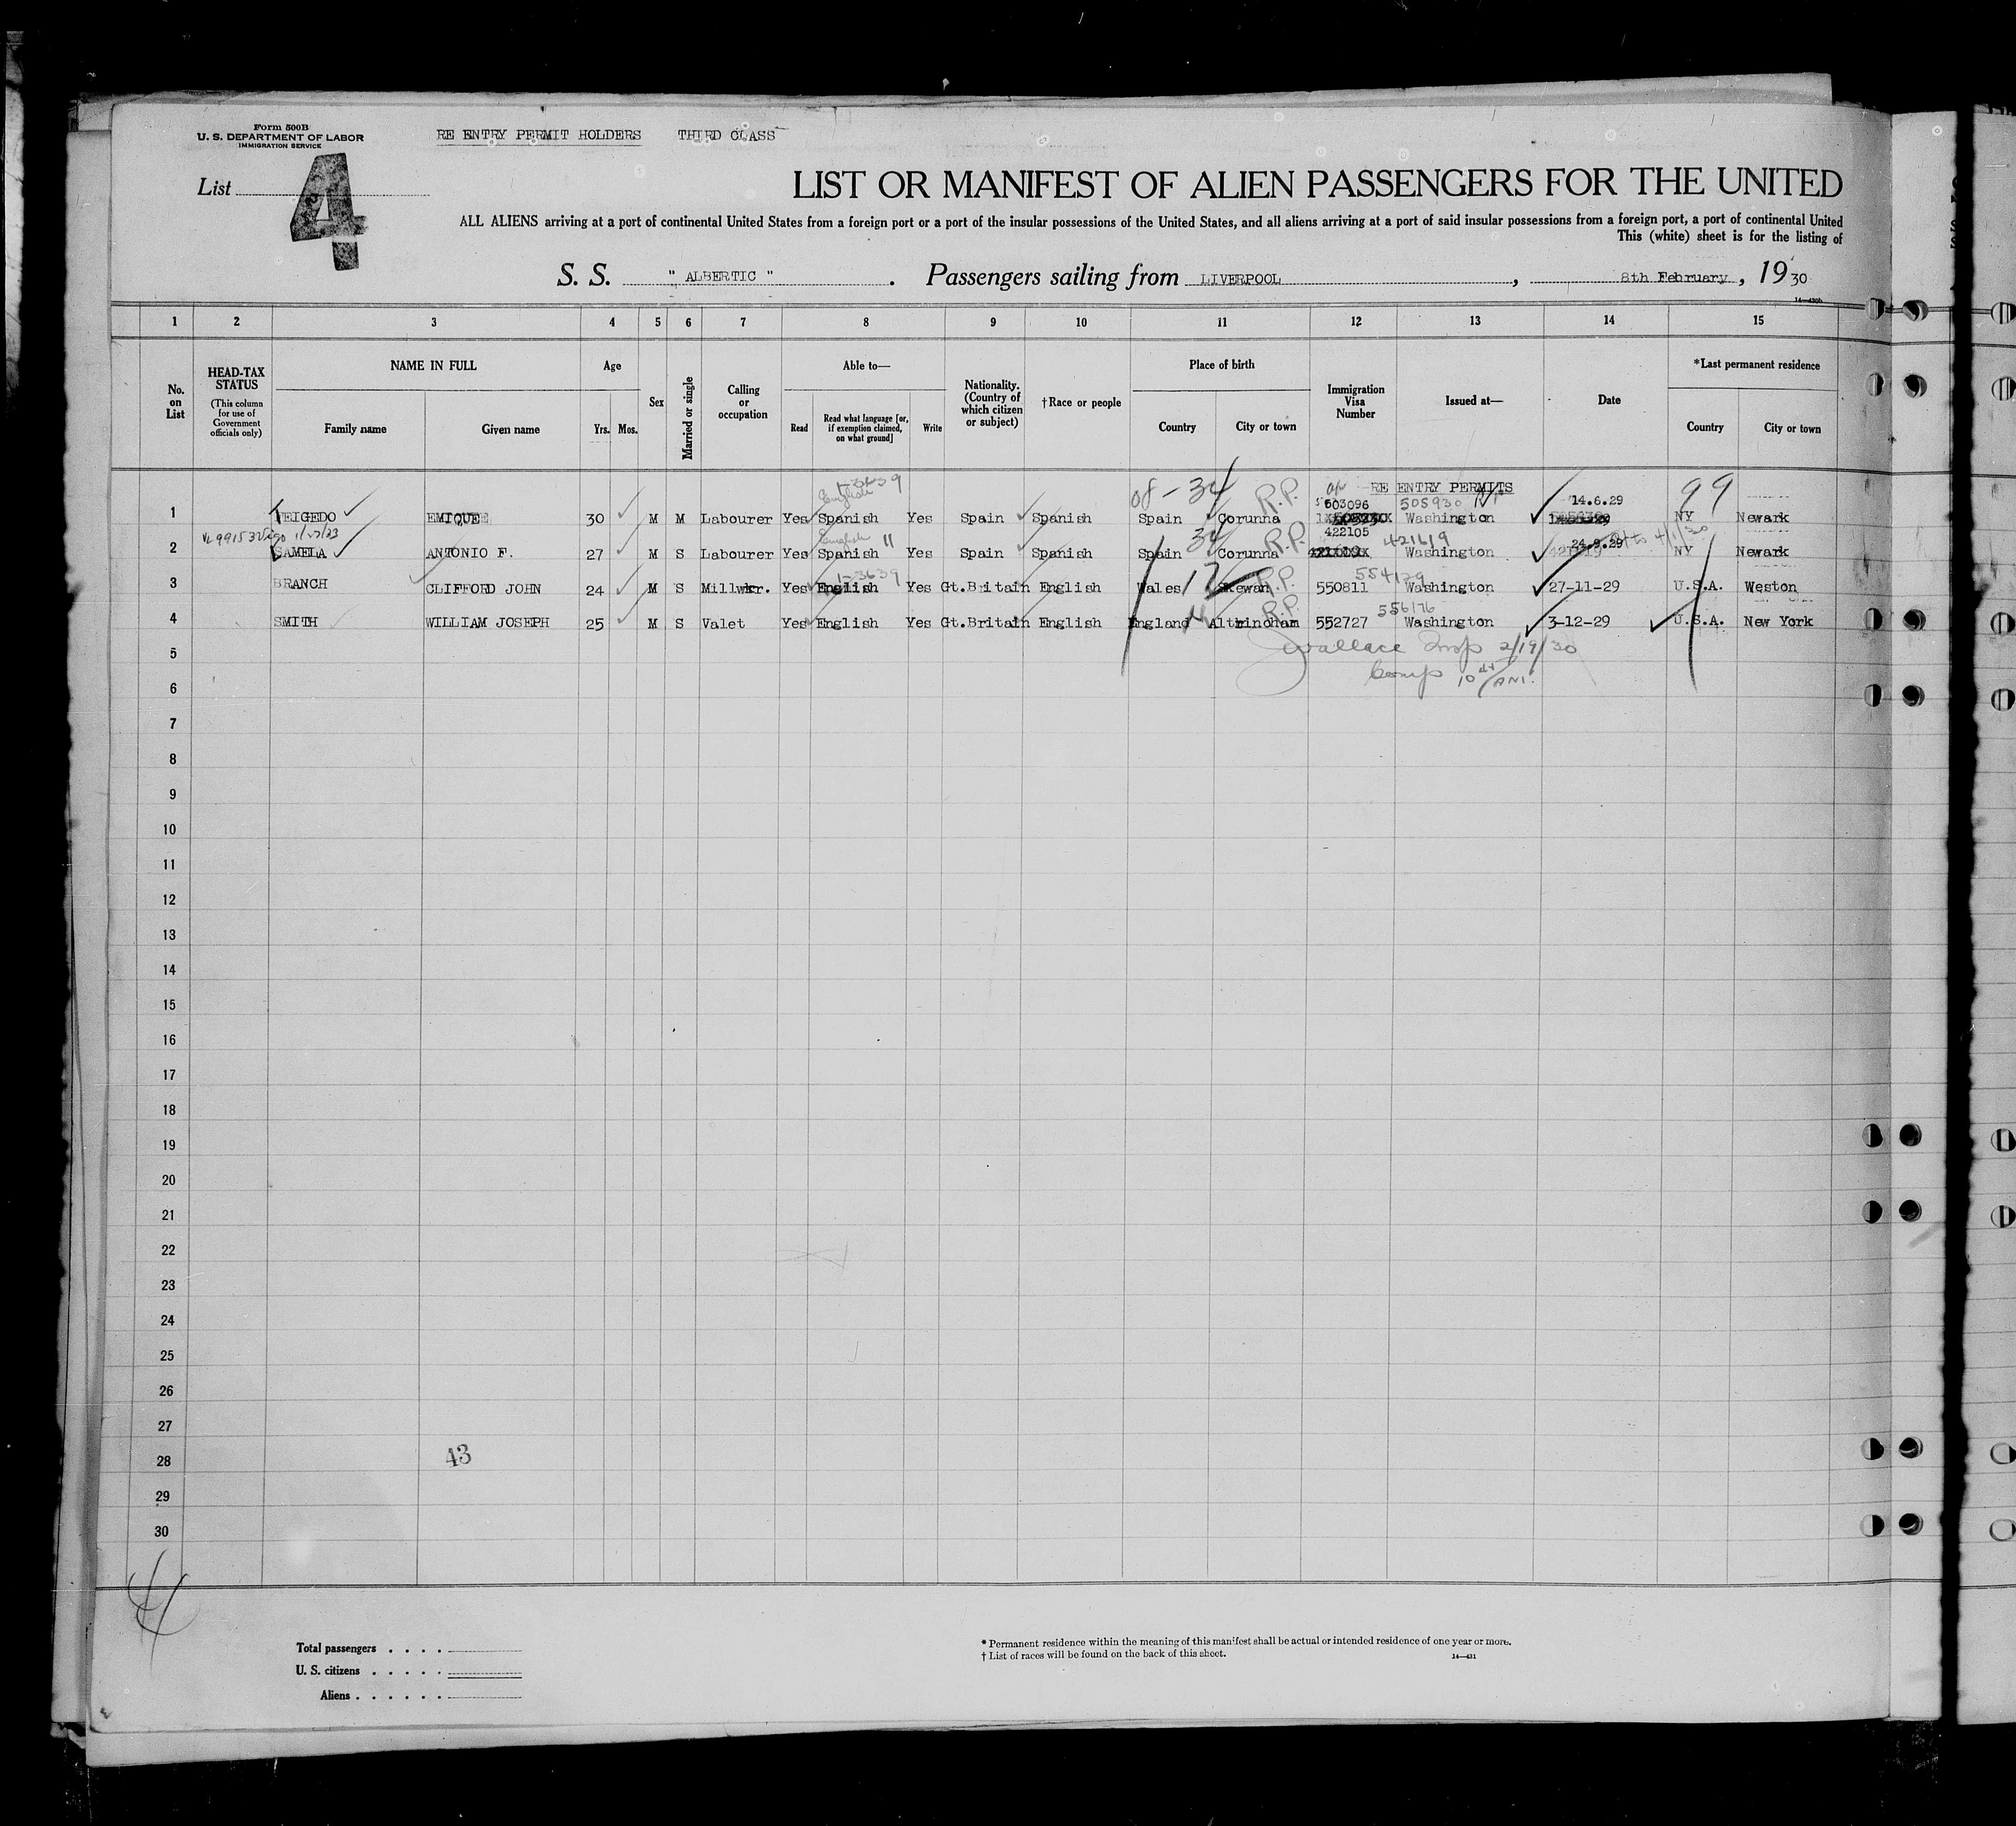 Form 500B
U. S. DEPARTMENT OF LABOR
IMMIGRATION SERVICE
RE ENTRY PERMIT HOLDERS THIRD CLASS
List 4
LIST OR MANIFEST OF ALIEN PASSENGERS FOR THE UNITED
ALL ALIENS arriving at a port of continental United States from a foreign port or a port of the insular possessions of the United States, and all aliens arriving at a port of said insular possessions from a foreign port, a port of continental United
This (white) sheet is for the listing of
S. S. " ALBERTIC " . Passengers sailing from LIVERPOOL , 8th February , 19 30
14—430b
1 2 3 4 5 6 7 8 9 10 11 12 13 14 15
No. on List
HEAD-TAX STATUS (This column for use of Government officials only)
NAME IN FULL
Family name Given name
Age
Yrs. Mos.
Sex
Married or single
Calling or occupation
Able to—
Read Read what language [or, if exemption claimed, on what ground] Write
Nationality. (Country of which citizen or subject)
†Race or people
Place of birth
Country City or town
Immigration Visa Number
Issued at—
Date
*Last permanent residence
Country City or town
08 - 34 R.P. RE ENTRY PERMITS 99
English 503096 505930 14.6.29
1 TEIGEDO EMIQUE 30 M M Labourer Yes Spanish Yes Spain Spanish Spain Corunna Washington NY Newark
English " 34 R.P. 422105 421619 24.9.29
2 SAMELA ANTONIO F. 27 M S Labourer Yes Spanish Yes Spain Spanish Spain Corunna Washington NY Newark
17 R.P. 554179
3 BRANCH CLIFFORD JOHN 24 M S Millwkr. Yes English Yes Gt.Britain English Wales Skewan 550811 Washington 27-11-29 U.S.A. Weston
R.P. 556176
4 SMITH WILLIAM JOSEPH 25 M S Valet Yes English Yes Gt.Britain English England Altrincham 552727 Washington 3-12-29 U.S.A. New York
5 Wallace Insp 2/19/30
6 Comp 10
7
8
9
10
11
12
13
14
15
16
17
18
19
20
21
22
23
24
25
26
27
28 43
29
30
Total passengers . . . .
U. S. citizens . . . . .
Aliens . . . . . .
* Permanent residence within the meaning of this manifest shall be actual or intended residence of one year or more.
† List of races will be found on the back of this sheet.
14—431